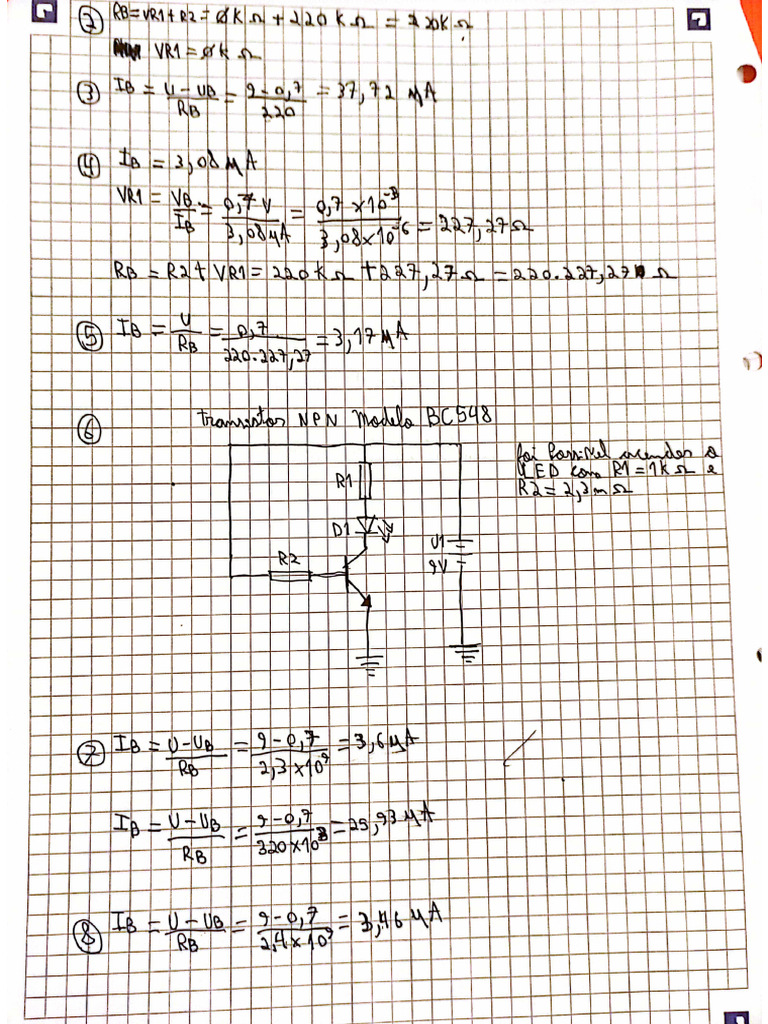 ② RB=VR1+R2=0KΩ+220KΩ=220KΩ
VR1=0KΩ
③ IB = U-UB/RB = 9-0,7/220 = 37,72 µA
④ IB = 3,08 µA
VR1 = VB/IB = 0,7V/3,08µA = 0,7×10⁻³/3,08×10⁻⁶ = 227,27Ω
RB = R2+ VR1= 220KΩ +227,27Ω = 220.227,27 Ω
⑤ IB = U/RB = 0,7/220.227,27 = 3,17 µA
⑥ transistor NPN Modelo BC548
foi Possivel acender o
LED com R1=1KΩ e
R2=2,3mΩ
R1
D1
R2
U1
9V
⑦ IB = U-UB/RB = 9-0,7/2,3×10⁹ = 3,6µA
IB = U-UB/RB = 9-0,7/320×10³ = 25,93 µA
⑧ IB = U-UB/RB = 9-0,7/2,4×10⁹ = 3,46 µA